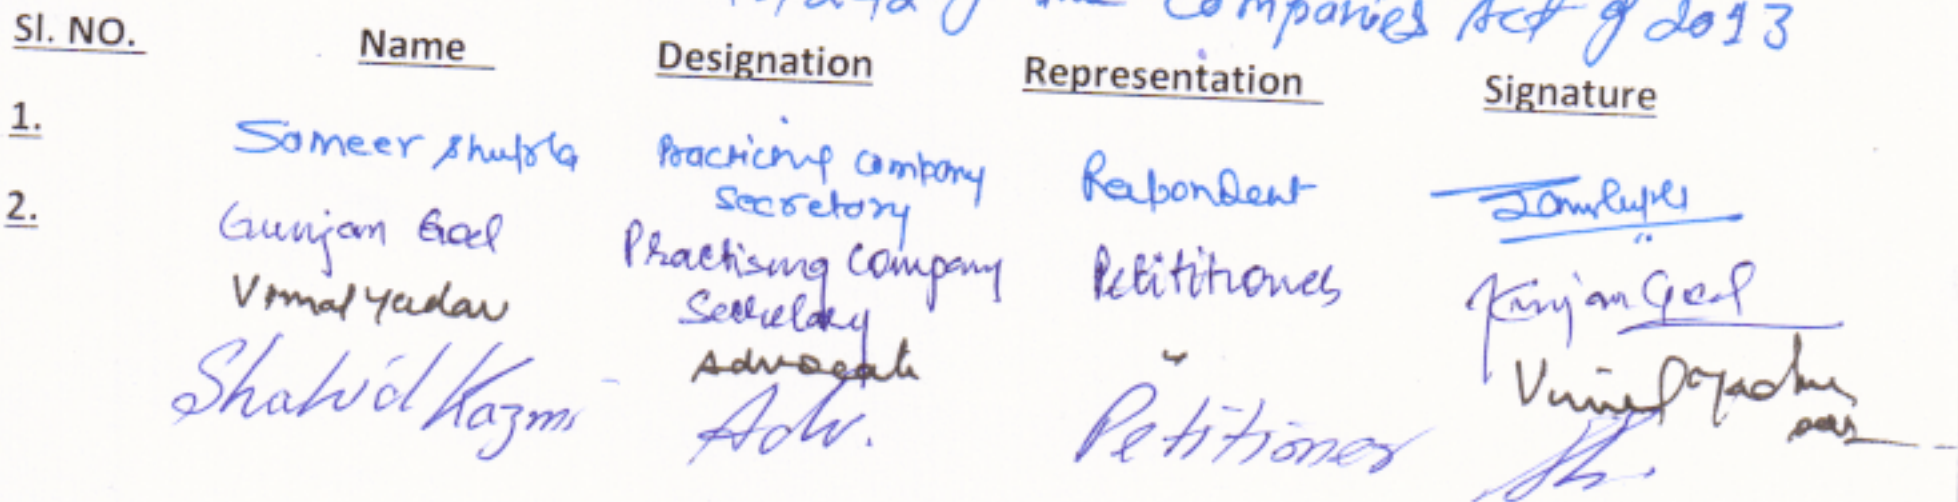 Companies Act of 2013
Sl. NO. Name Designation Representation Signature
1. Sameer Shukla Practicing Company Secretary Repondent
2. Gunjan Goel Practising Company Secretary Petititioner Gunjan Goel
Vimal Yadav Advocate " Vimal Yadav
Shahid Kazmi Adv. Petitioner